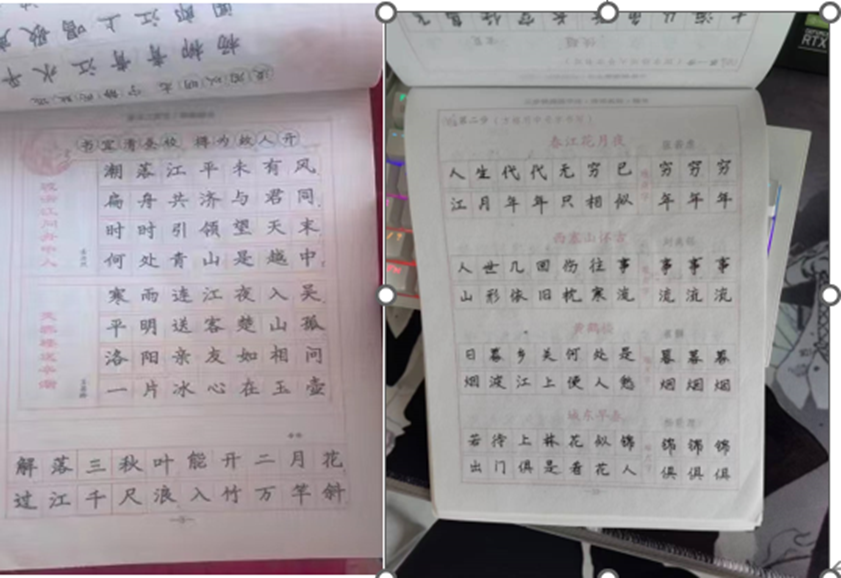 书宜清奏校 得为故人开
潮落江平未有风
扁舟共济与君同
时时引领望天末
何处青山是越中
寒雨连江夜入吴
平明送客楚山孤
洛阳亲友如相问
一片冰心在玉壶
解落三秋叶能开二月花
过江千尺浪入竹万竿斜
春江花月夜
人生代代无穷已 穷穷穷
江月年年只相似 年年年
西塞山怀古
人世几回伤往事 事事事
山形依旧枕寒流 流流流
黄鹤楼
日暮乡关何处是 暮暮暮
烟波江上使人愁 烟烟烟
城东早春
若待上林花似锦 锦锦锦
出门俱是看花人 俱俱俱
RTX